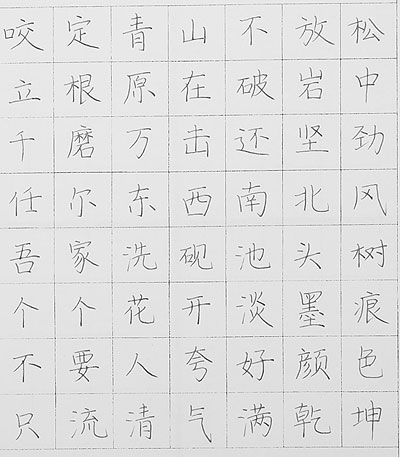 咬定青山不放松
立根原在破岩中
千磨万击还坚劲
任尔东西南北风
吾家洗砚池头树
个个花开淡墨痕
不要人夸好颜色
只流清气满乾坤